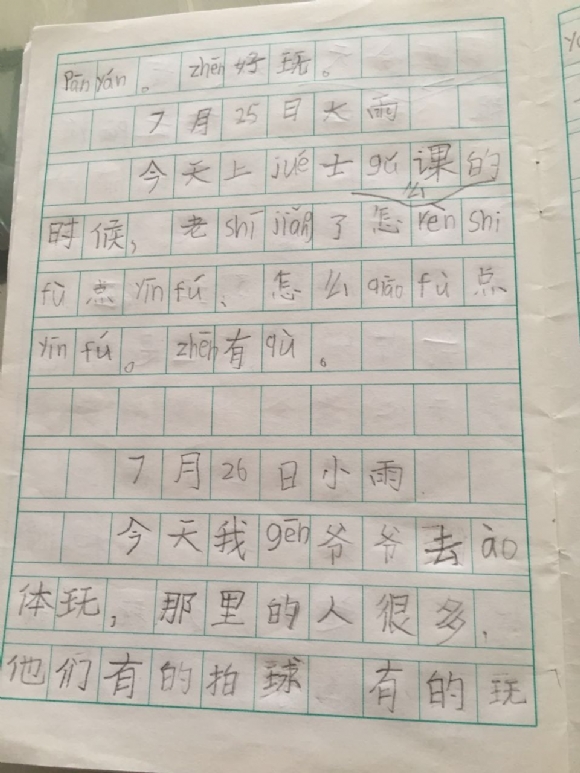 Pān yán。zhēn好玩。
7月25日大雨
今天上jué士gǔ课的
时候，老shī jiǎng了怎么rèn shi
fù点yīn fú、怎么qiāo fù点
yīn fú。zhēn有qù。
7月26日小雨
今天我gēn爷爷去ào
体玩，那里的人很多，
他们有的拍球 有的玩